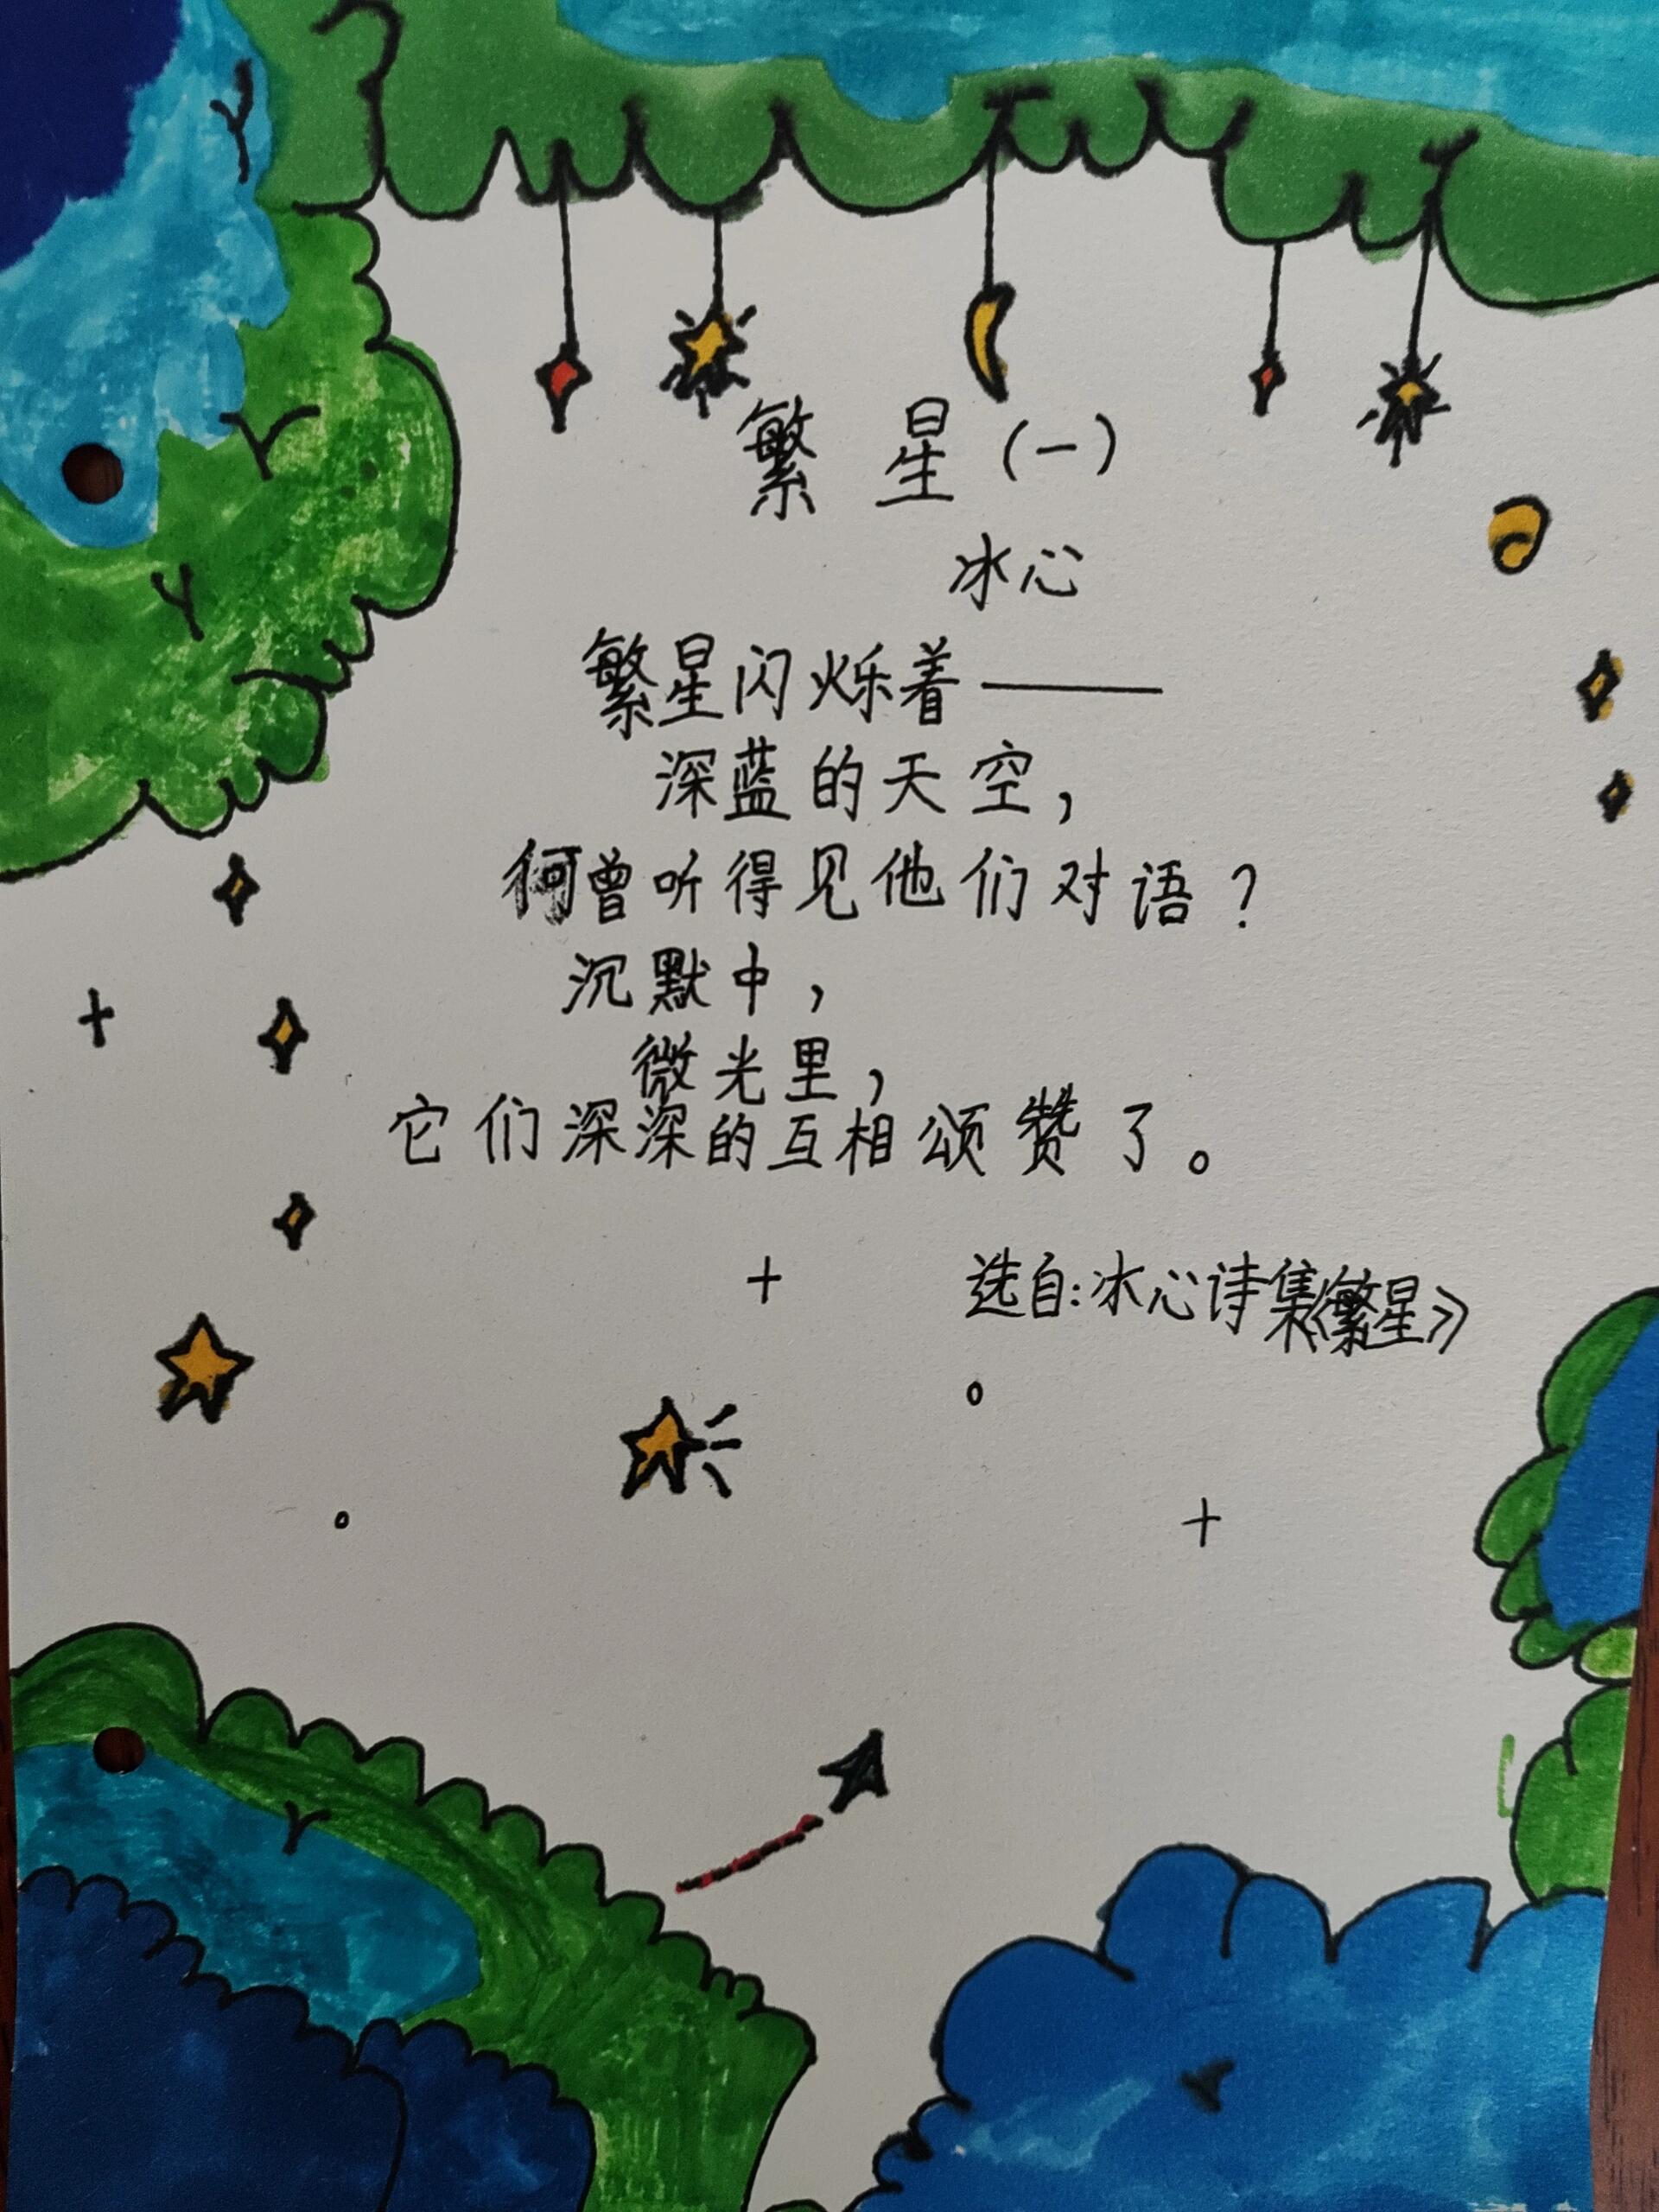 繁星(一)
冰心
繁星闪烁着——
深蓝的天空,
何曾听得见他们对语?
沉默中,
微光里,
它们深深的互相颂赞了。
选自:冰心诗集《繁星》